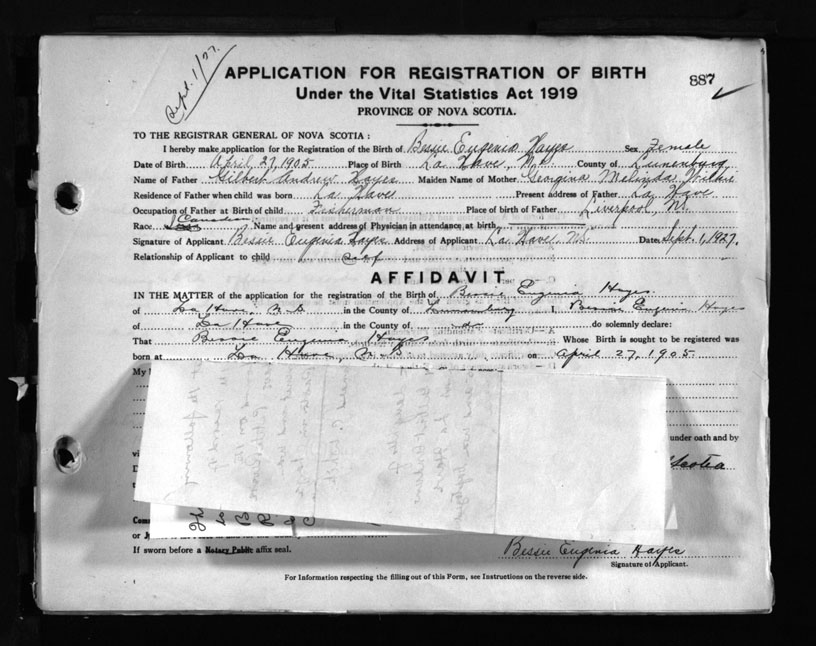 Sept. 1/27.
APPLICATION FOR REGISTRATION OF BIRTH
887
Under the Vital Statistics Act 1919
PROVINCE OF NOVA SCOTIA.
TO THE REGISTRAR GENERAL OF NOVA SCOTIA :
I hereby make application for the Registration of the Birth of Bessie Eugenia Hayes Sex Female
Date of Birth April 27, 1905 Place of Birth La Have, N.S. County of Lunenburg
Name of Father Gilbert Andrew Hayes Maiden Name of Mother Georgina Melinda Wilkie
Residence of Father when child was born La Have Present address of Father La Have
Occupation of Father at Birth of child Fisherman Place of birth of Father Liverpool, N.S.
Race Canadian Name and present address of Physician in attendance at birth
Signature of Applicant Bessie Eugenia Hayes Address of Applicant La Have N.S. Date Sept. 1, 1927,
Relationship of Applicant to child self
AFFIDAVIT
IN THE MATTER of the application for the registration of the Birth of Bessie Eugenia Hayes
of La Have, N.S in the County of Lunenburg I, Bessie Eugenia Hayes
of La Have in the County of do do solemnly declare:
That Bessie Eugenia Hayes Whose Birth is sought to be registered was
born at La Have, N.S on April 27, 1905
My
under oath and by
Scotia
Com
or J
If sworn before a Notary Public affix seal.
Bessie Eugenia Hayes
Signature of Applicant.
For Information respecting the filling out of this Form, see Instructions on the reverse side.